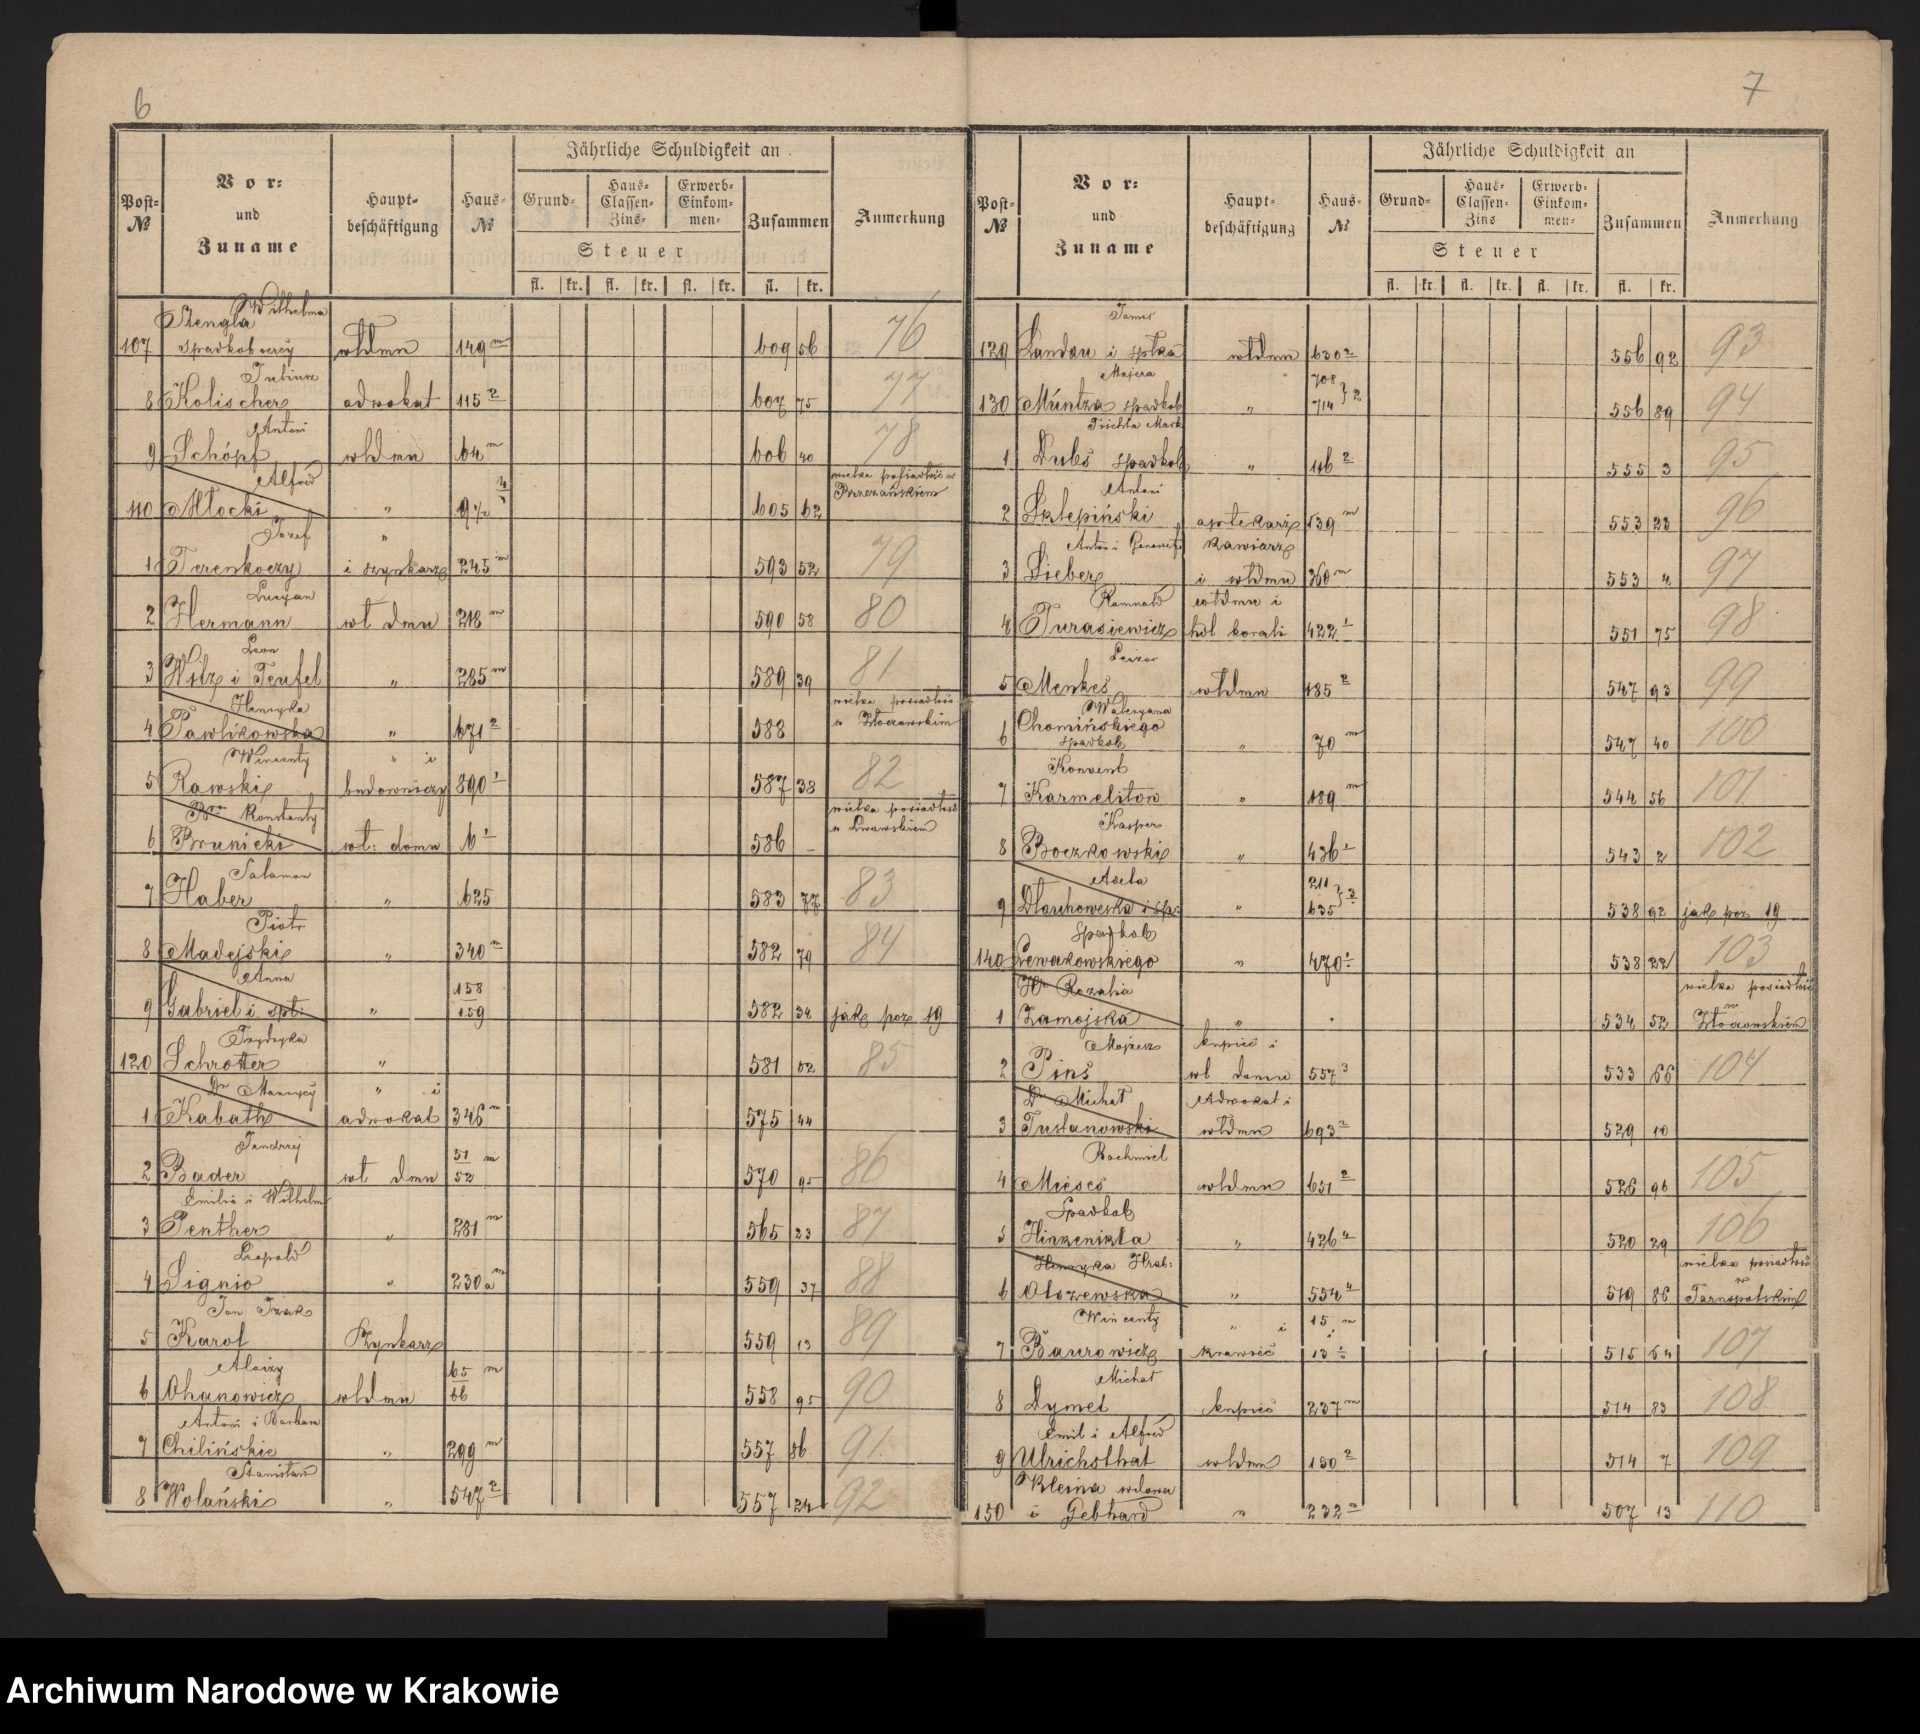 6
Post-№
Vor: und Zuname
Haupt-beschäftigung
Haus-№
Jährliche Schuldigkeit an
Grund-
Haus-Classen-Zins-
Erwerb-Einkom-men-
Steuer
Zusammen
Anmerkung
fl. kr. fl. kr. fl. kr. fl. kr.
Wilhelma
Stengla
107 spadkobiercy włdmu 149 m 609 56 76
Juliusz
8 Kolischer adwokat 115 2 607 75 77
Antoni
9 Schöpf włdmu 64 m 606 40 78
Alfred
wielka posiadłość w
Brzeżańskiem
110 Młocki " 9 1/2 4 605 62
Józef "
1 Terenkoczy i szynkarz 245 m 593 52 79
Lucyan
2 Hermann wł dmu 218 m 590 58 80
Leon
3 Wilz i Teufel " 285 m 589 39 81
Henryka
wielka posiadłość
w Złoczowskim
4 Pawlikowska " 671 2 588
Wincenty " i
5 Rawski budowniczy 890 1 587 38 82
Br Konstanty
wielka posiadłość
w Lwowskiem
6 Brunicki wł: domu 6 1 586 -
Salamon
7 Haber " 625 583 77 83
Piotr
8 Madejski " 340 m 582 79 84
Anna
158
9 Gabriel i spł: " 159 582 34 jak poz 19
Frydryka
120 Schrotter " 581 52 85
Dr Maurycy " i
1 Kabath adwokat 346 m 575 44
Jendrzej
51 m
2 Bader wł dmu 52 570 95 86
Emilia i Wilhelm
3 Penther " 281 m 565 23 87
Leopold
4 Signio " 230a m 559 37 88
Jan Izak
5 Karol Szynkarz 559 13 89
Aloizy
65 m
6 Ohanowicz włdmu 66 558 95 90
Antoni i Barbara
7 Chilińskie " 299 m 557 86 91
Stanisław
8 Wolański " 547 2 557 24 92
7
Post-№
Vor: und Zuname
Haupt-beschäftigung
Haus-№
Jährliche Schuldigkeit an
Grund-
Haus-Classen-Zins
Erwerb-Einkom-men-
Steuer
Zusammen
Anmerkung
fl. kr. fl. kr. fl. kr. fl. kr.
129 Landau i spłka włdmu 630 2 556 92 93
Majera
708
130 Müntza spadkob " 714 } 2 556 89 94
1 Dubs spadkob " 116 2 555 3 95
Antoni
2 Sklepiński aptekarz 539 m 553 23 96
Antoni i Kawiarz
3 Lieber i włdmu 360 m 553 4 97
Romuald włdmu i
4 Turasiewicz hdl korali 422 1 551 75 98
Leizor
5 Menkes włdmu 185 2 547 93 99
Waleryana
Chomińskiego
6 spadkob " 70 m 547 40 100
Konvent
7 Karmelitow " 189 m 544 56 101
Kasper
8 Boczkowski " 436 1 543 2 102
Adela
211
9 Dłuchowska i sp: " 635 } 3 538 92 jak poz 19
Spadkob
140 Lewakowskiego " 470 1 538 22 103
Hr Rozalia
wielka posiadłość
w
1 Zamojska " 534 52 Złoczowskiem
Mojżesz kupiec i
2 Pins wł domu 557 3 533 66 104
Dr Michał Adwokat i
3 Tustanowski włdmu 693 2 529 10
Rachmiel
4 Mieses włdmu 651 2 526 96 105
Spadkob
5 " 426 4 520 29 106
Henryka Hrab:
wielka posiadłość
w
6 Olszewska " 554 4 519 86 Tarnopolskim
Wincenty " i 15 m
7 Baurowicz krawiec 13 515 64 107
Michał
8 Dymet kupiec 237 m 514 83 108
Emil i Alfred
9 Ulrichsthal włdmu 150 2 514 7 109
Kleina wdowa
150 i Gebhard " 232 m 507 13 110
Archiwum Narodowe w Krakowie